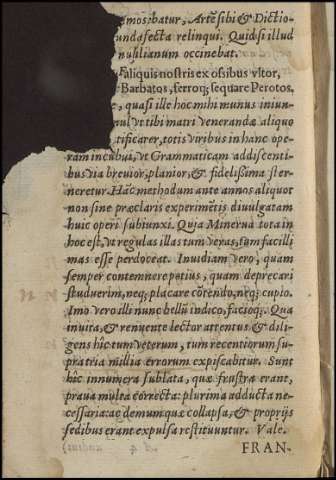 mosibatur, Artẽ sibi & Dictio-
unda secta relinqui. Quid si illud
nusilianum occinebat.
Aliquis nostris ex ossibus vltor,
Barbatos, ferroq; sequare Perotos.
e, quasi ille hoc mihi munus iniun-
vt tibi matri venerandæ aliquo
tificarer, totis viribus in hanc ope-
ram incubui, vt Grammaticam addiscenti-
bus via breuior, planior, & fidelissima ster-
neretur. Hãc methodum ante annos aliquot
non sine præclaris experimẽtis diuulgatam
huic operi subiunxi. Quia Minerua tota in
hoc est, vt regulas illas tum veras, tum facilli
mas esse perdoceat. Inuidiam vero, quam
semper contemnere potius, quam deprecari
studuerim, neq; placare cõtendo, neq; cupio.
Imo vero illi nunc bellũ indico, facioq;. Qua
inuita, & renuente lector attentus & dili-
gens hîc tum veterum, tum recentiorum su-
pra tria millia errorum expiscabitur. Sunt
hîc innumera sublata, quæ frustra erant,
praua mulea correcta: plurima adducta ne-
cessaria: ac demum quæ collapsa, & proprijs
sedibus erant expulsa restituuntur. Vale.
FRAN-